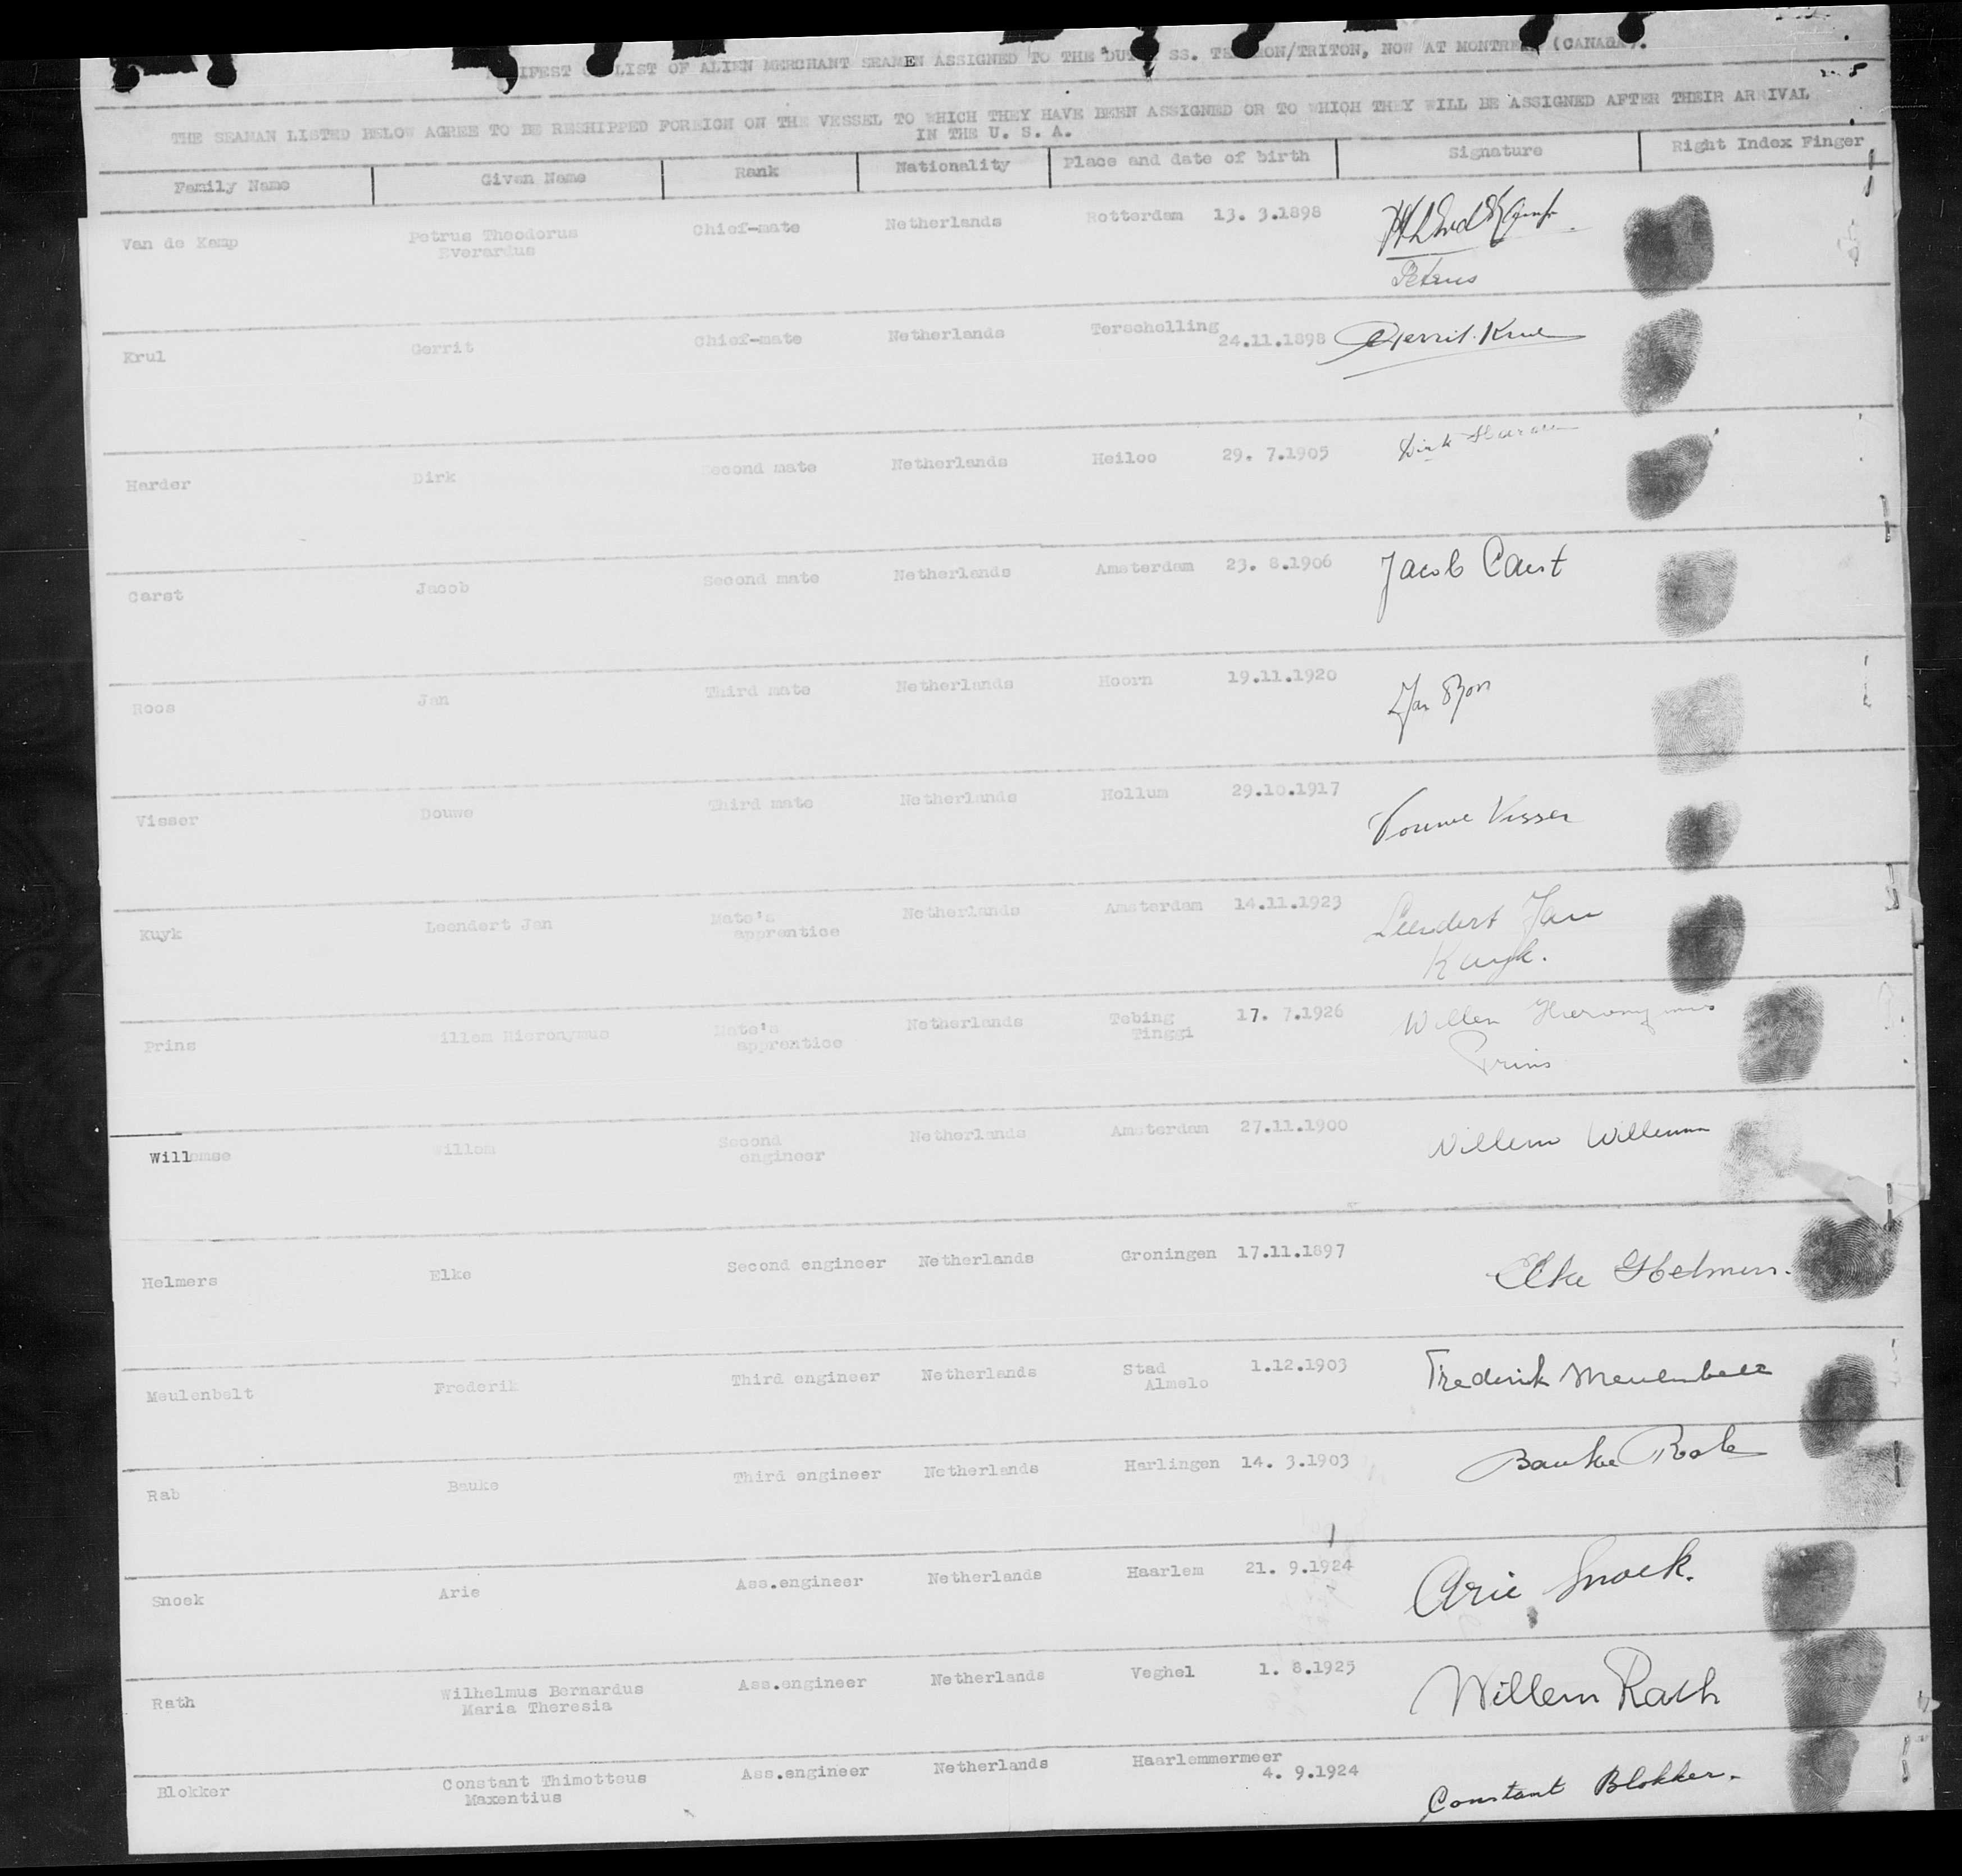 MANIFEST OR LIST OF ALIEN MERCHANT SEAMEN ASSIGNED TO THE DUTCH SS. NOW AT MONTREAL (CANADA).
THE SEAMAN LISTED BELOW AGREE TO BE RESHIPPED FOREIGN ON THE VESSEL TO WHICH THEY HAVE BEEN ASSIGNED OR TO WHICH THEY WILL BE ASSIGNED AFTER THEIR ARRIVAL
IN THE U. S. A.
Family Name Given Name Rank Nationality Place and date of birth Signature Right Index Finger
Van de Kamp Petrus Theodorus Chief-mate Netherlands Rotterdam 13. 3.1898
Everardus
Petrus
Krul Gerrit Chief-mate Netherlands Terschelling
24.11.1898 Gerrit Krul
Harder Dirk Second mate Netherlands Heiloo 29. 7.1905 Dirk
Carst Jacob Second mate Netherlands Amsterdam 23. 8.1906 Jacob Carst
Roos Jan Third mate Netherlands Hoorn 19.11.1920 Jan Roos
Visser Douwe Third mate Netherlands Hollum 29.10.1917 Douwe Visser
Kuyk Leendert Jan Mate's Netherlands Amsterdam 14.11.1923 Leendert Jan
apprentice Kuyk.
Prins Willem Hieronymus Mate's Netherlands Tebing 17. 7.1926 Willem Hieronymus
apprentice Tinggi Prins
Willemse Willem Second Netherlands Amsterdam 27.11.1900 Willem Willemse
engineer
Helmers Elke Second engineer Netherlands Groningen 17.11.1897 Elke Helmers.
Meulenbelt Frederik Third engineer Netherlands Stad 1.12.1903 Frederik Meulenbelt
Almelo
Rab Bauke Third engineer Netherlands Harlingen 14. 3.1903 Bauke Rab
Snoek Arie Ass.engineer Netherlands Haarlem 21. 9.1924 Arie Snoek.
Rath Wilhelmus Bernardus Ass.engineer Netherlands Veghel 1. 8.1925 Willem Rath
Maria Theresia
Blokker Constant Thimotteus Ass.engineer Netherlands Haarlemmermeer
Maxentius 4. 9.1924 Constant Blokker.